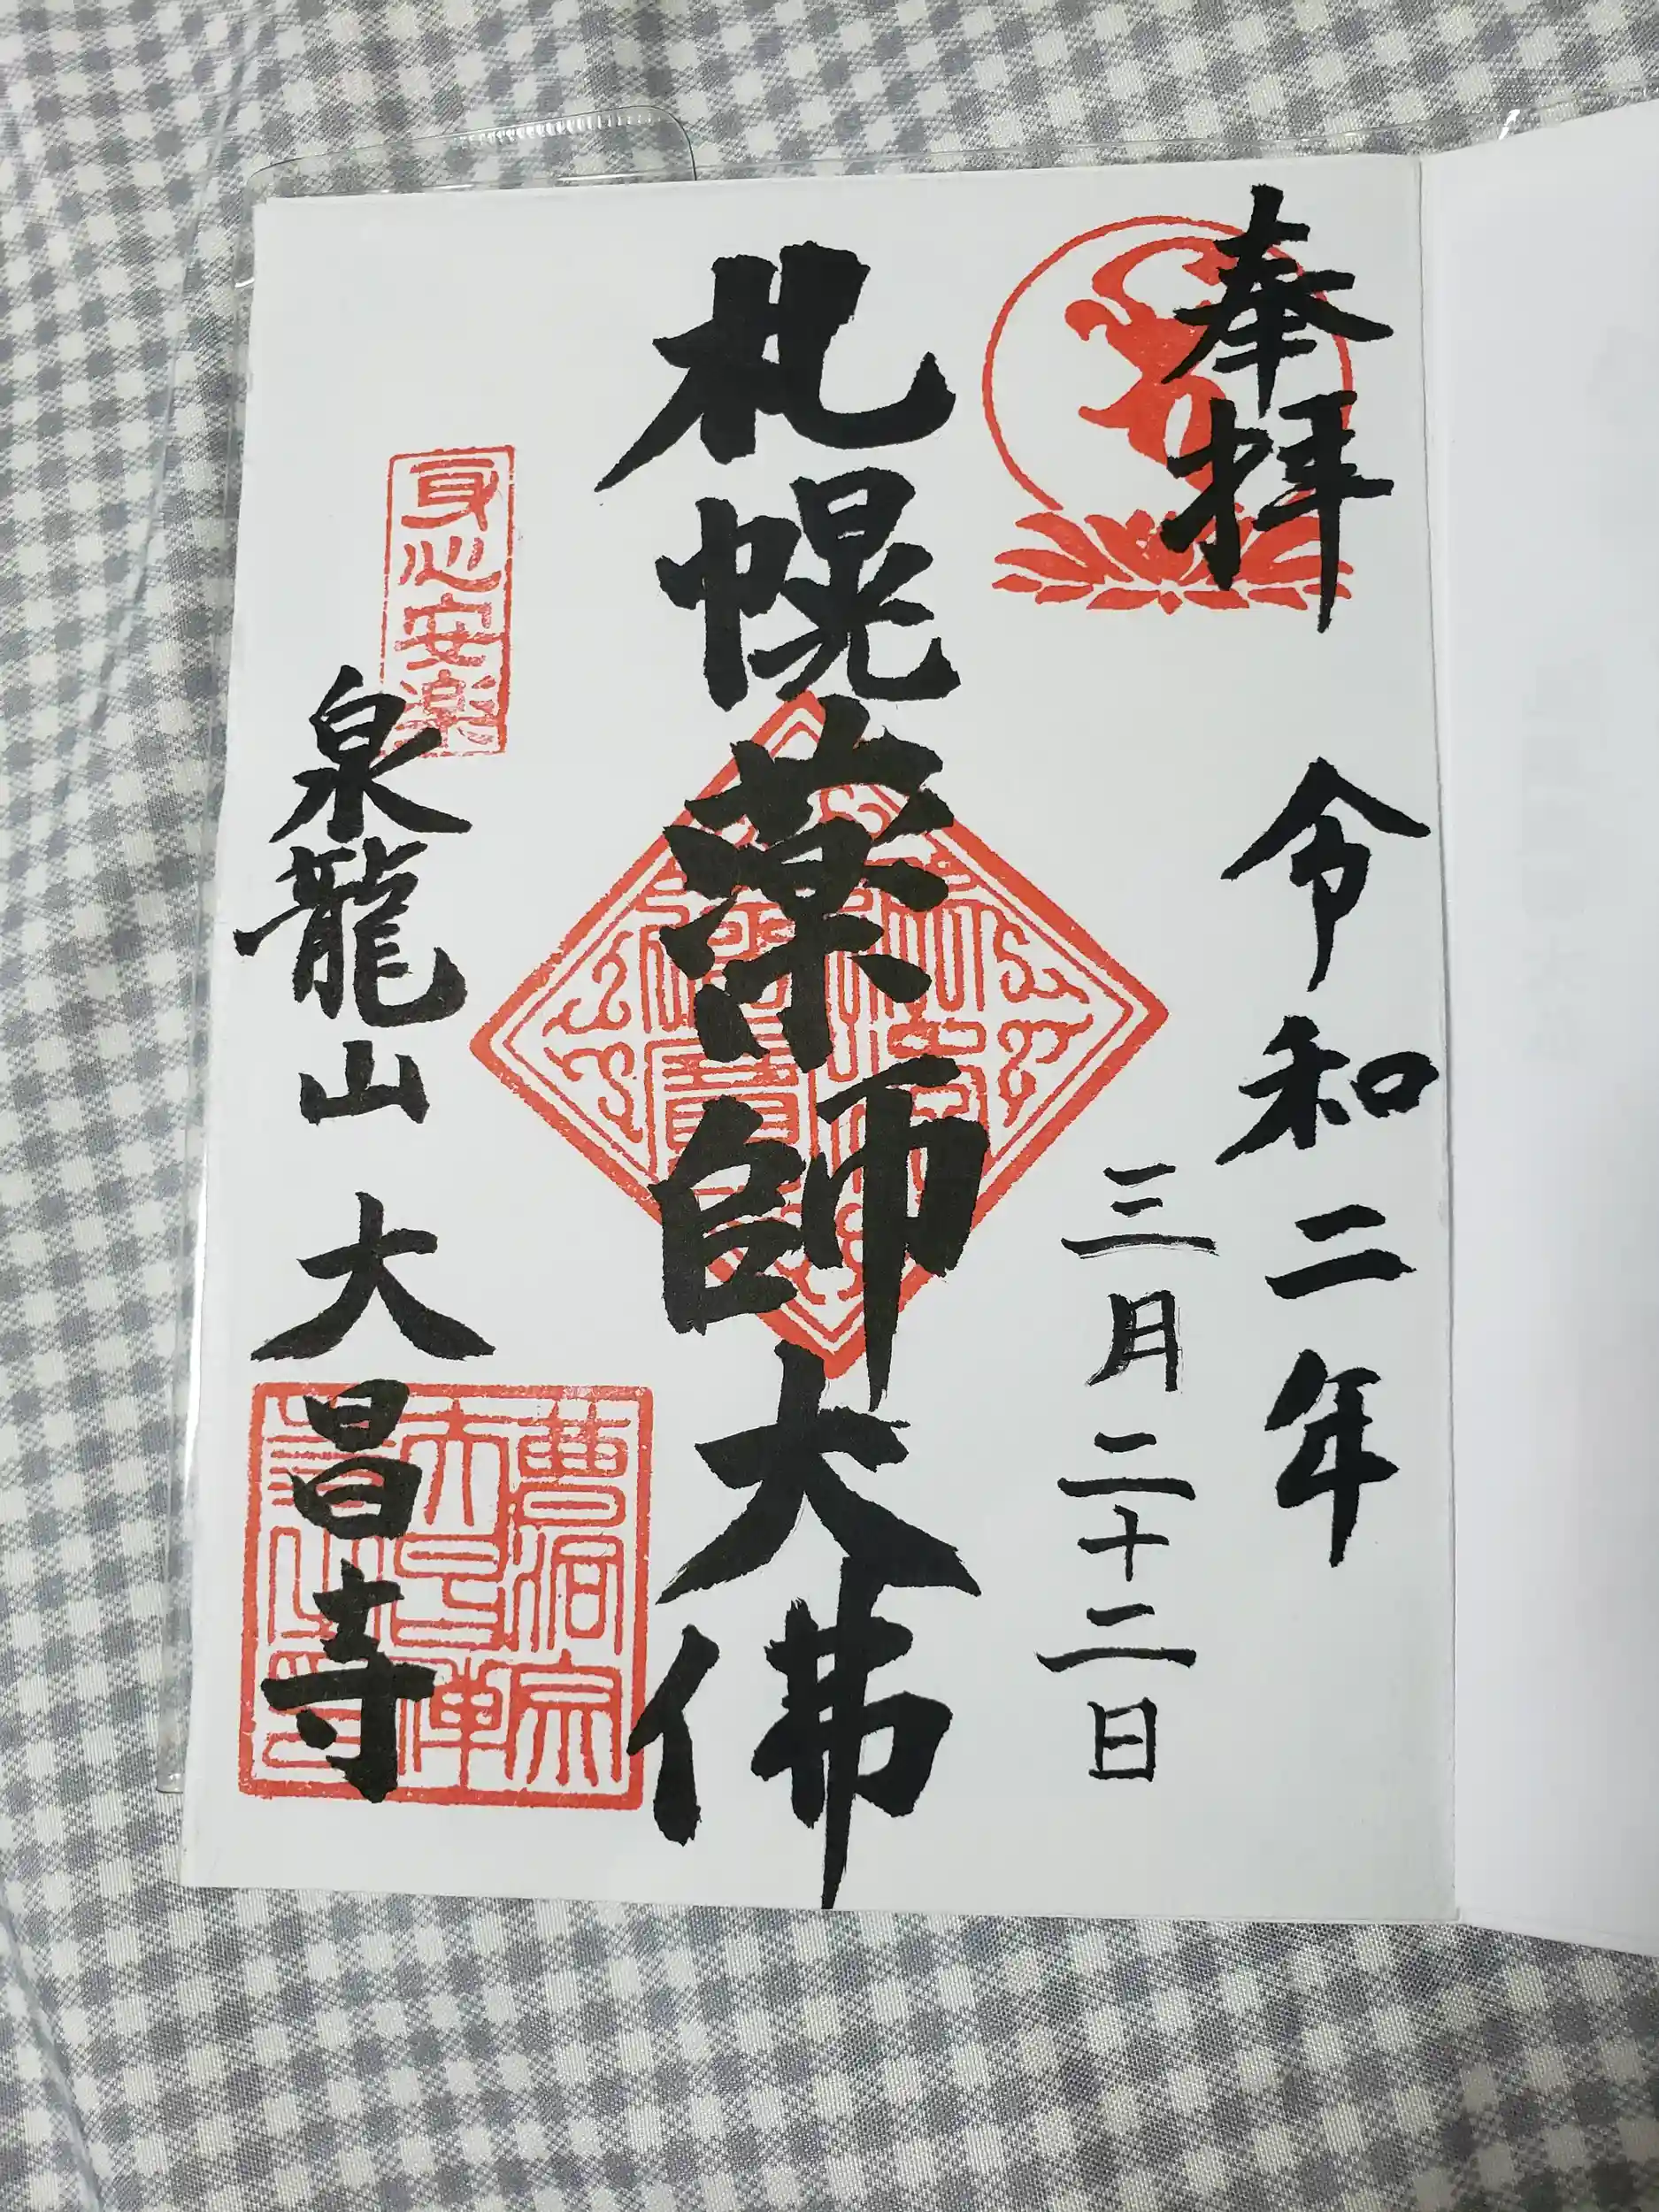 奉拝
令和二年
三月二十二日
札幌薬師大佛
身心安楽
泉龍山 大昌寺
曹洞宗
大昌禅